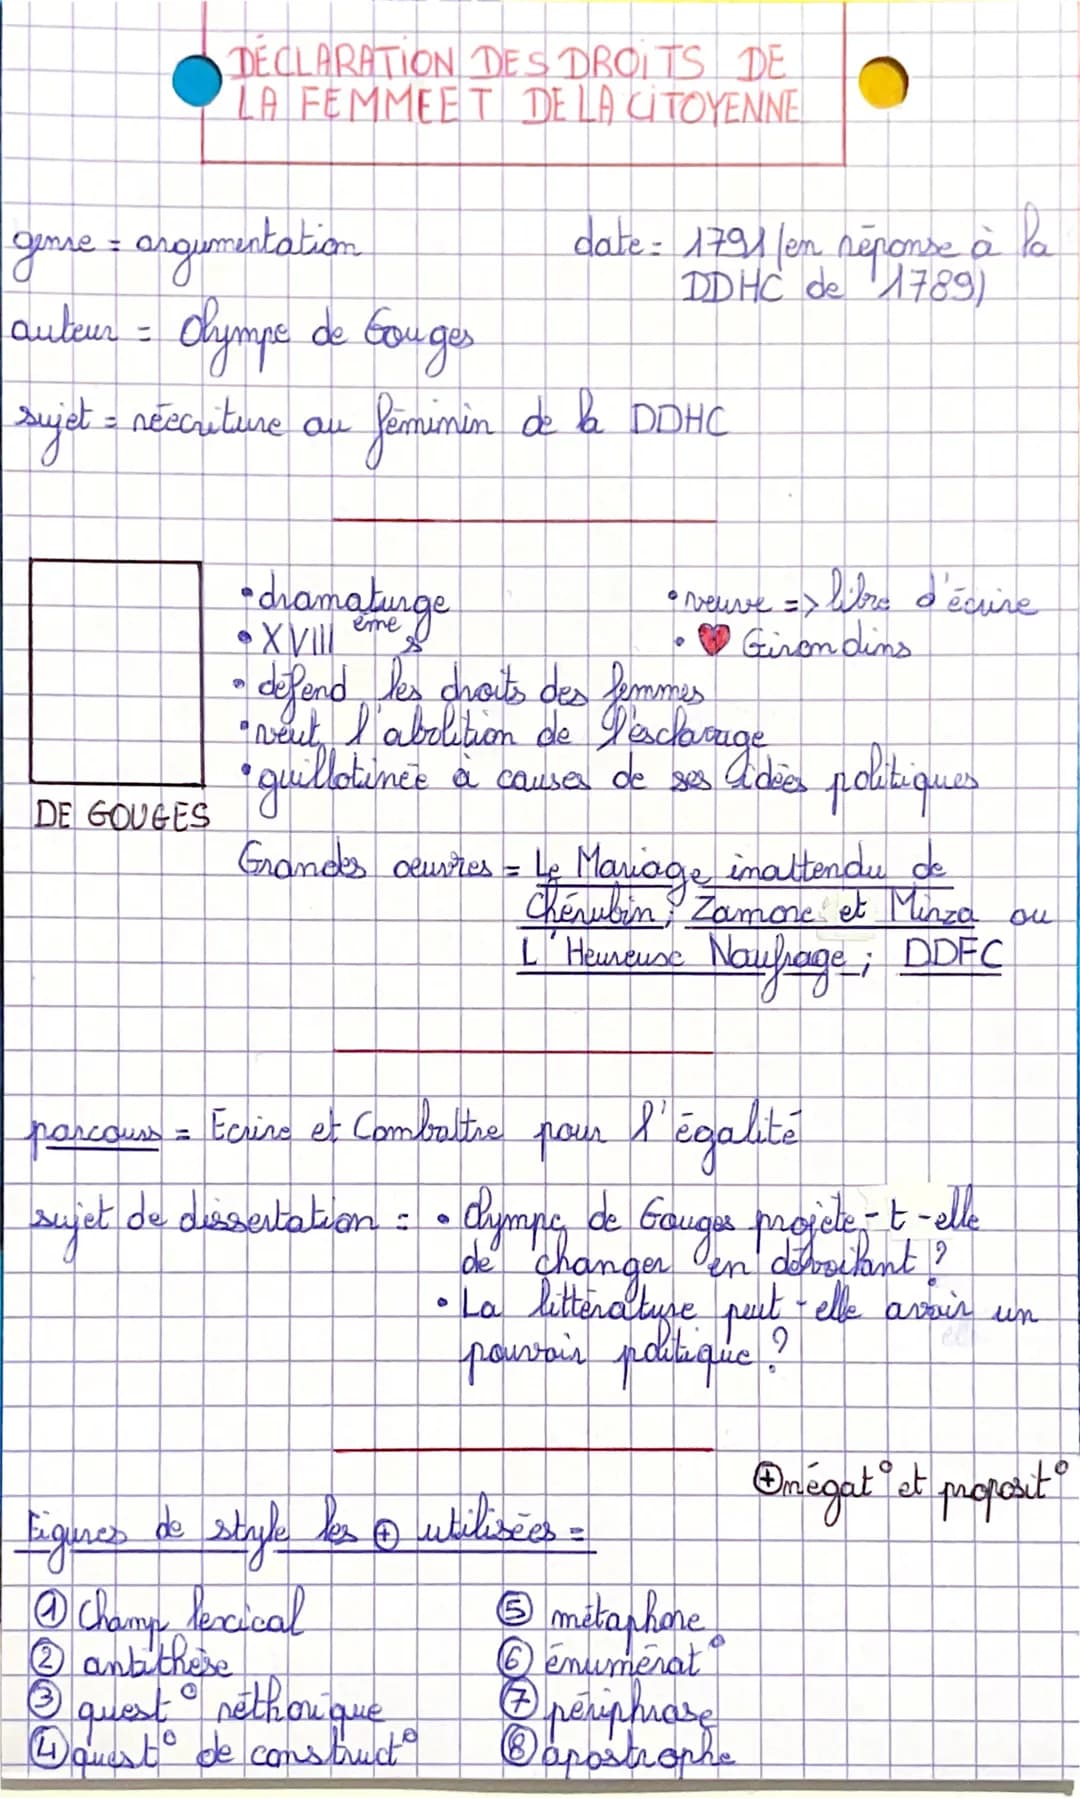 DÉCLARATION DES DROITS DE
LA FEMME ET DE LA CITOYENNE
genre = argumentation
date = 1791 (en réponse à la
DDHC de 1789)
auteur = Olympe de Gouges
sujet = réécriture au féminin de la DDHC
• dramaturge
• XVIII ème s
• veuve => libre d'écrire
• ❤ Girondins
• défend les droits des femmes
• veut l'abolition de l'esclavage
• guillotinée à causes de ses idées politiques
DE GOUGES
Grandes oeuvres = Le Mariage inattendu de
Chérubin ; Zamore et Mirza ou
L'Heureuse Naufrage ; DDFC
parcours = Ecrire et Combattre pour l'égalité
sujet de dissertation = • Olympe de Gouges projete-t-elle
de changer en dévoilant ?
• La littérature peut-elle avoir un
pouvoir politique ?
⊕ négat° et proposit°
Figures de style les ⊕ utilisées =
① Champ lexical
② antithèse
③ quest° réthorique
④ quest° de construct°
⑤ métaphore
⑥ énumérat°
⑦ périphrase
⑧ apostrophe